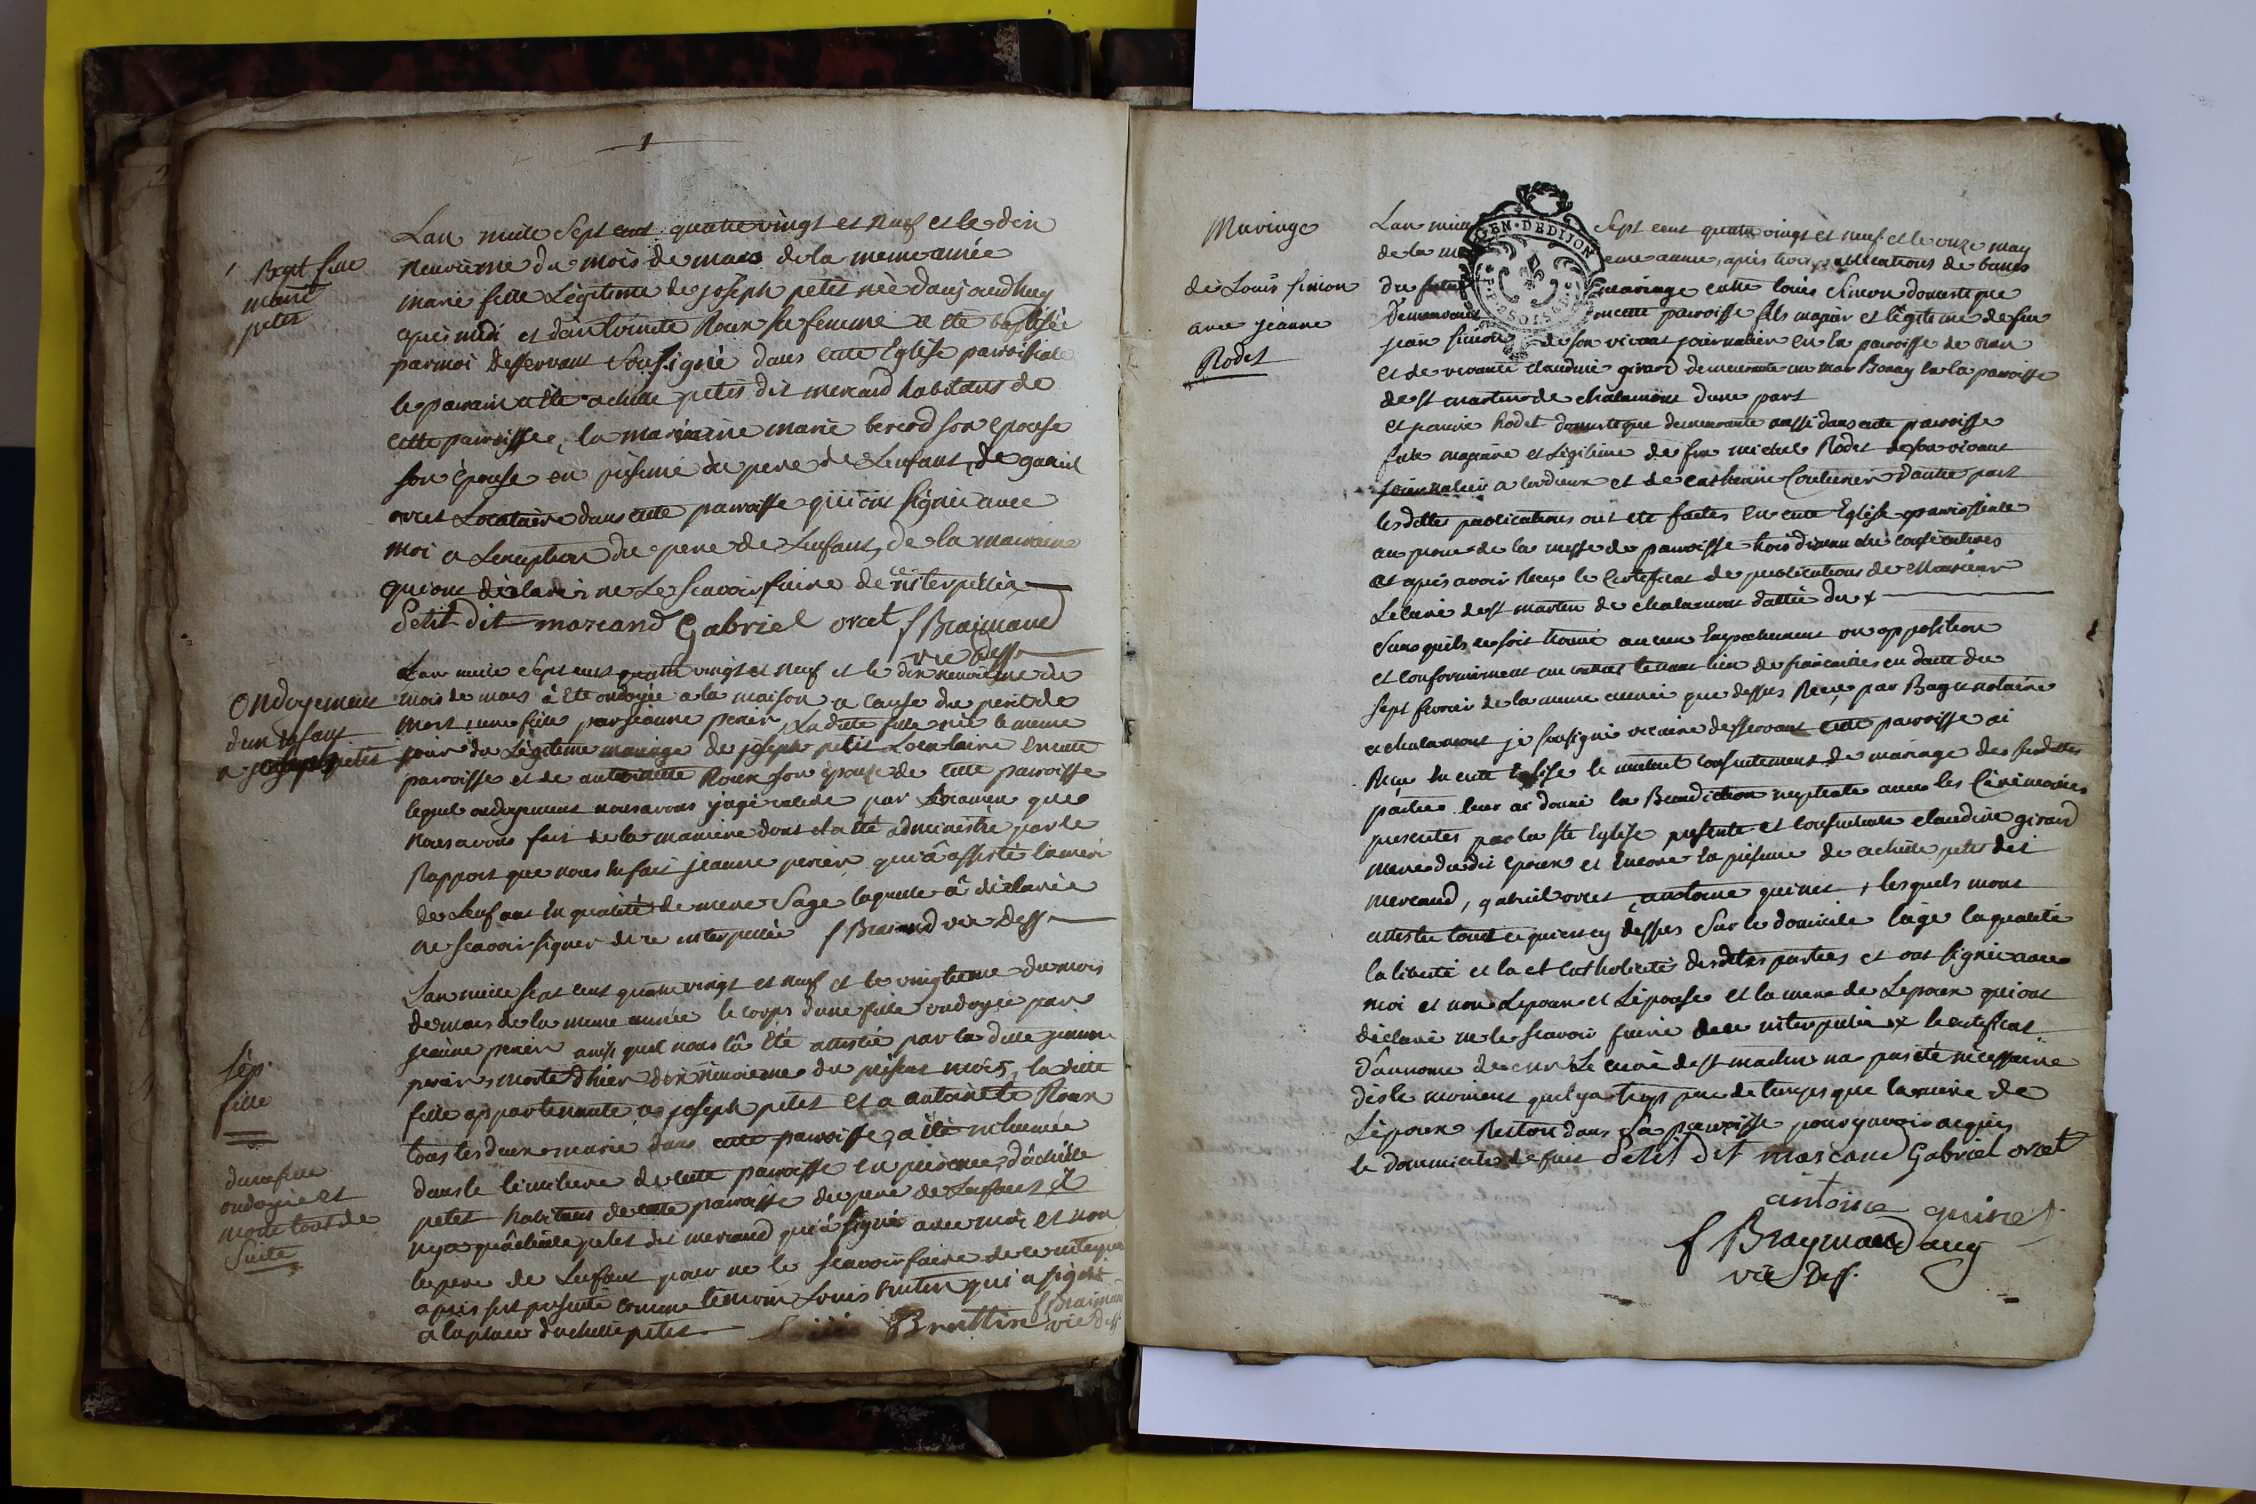 1
Bapt. fille
marie
petit
Lan mille Sept cent quatre vingt et Neuf et le dix
neuvieme du mois de mars de la meme année
marie fille Légitime de joseph petit née d'aujourdhuy
après midi et d'antoinete Roux sa femme a été baptisée
par moi desservant Soussigné dans cette Eglise paroissiale
le parain a été achille petit dit mercand habitant de
cette paroisse, la maraine marie bercod son epouse
son épouse en présence du pere de L'enfant, de gabriel
orcet Locataire dans cette paroisse qui ont signé avec
moi a Lexception du pere de Lenfant, de la maraine
qui ont déclaré ne Le Scavoir faire de ce interpellés
Petit dit marcand Gabriel orcet f Braimand
vic Dess
ondoyement
d'un enfant
a joseph petit
Lan mille Sept cent quatre vingt et neuf et le dix neuvieme du
mois de mars a été ondoyée a la maison a cause du peril de
mort une fille par jeanne perier, La dite fille née le meme
jour du Légitime mariage de joseph petit Locataire en cette
paroisse et de antoinette Roux son épouse de cette paroisse
lequel ondoyement nous avons jugé valide par Lexamen que
nous avons fait de la maniere dont il a été administré par le
Rapport que nous en fait jeanne perier qui a assisté la mere
de Lenfant en qualité de mere Sage laquelle a déclarée
ne scavoir signer de ce interpellée f Braimand vic Dess
Sép.
fille
d'une fille
ondoyée et
morte tout de
Suite
Lan mille sept cent quatre vingt et neuf et le vingtieme du mois
de mars de la meme année le corps d'une fille ondoyée par
jeanne perier ainsi quil nous l'a été attesté par la dite jeanne
perier, morte d'hier dix neuvieme du présent mois, la dite
fille appartenante a joseph petit et a antoinete Roux
tous les deux mariés dans cette paroisse, a été inhumée
dans le cimitiere de cette paroisse en présence d'achille
petit habitant de cette paroisse du pere de Lenfant
n'y a qu'achille petit dit mercand qui a signé avec moi et non
le pere de Lenfant pour ne le scavoir faire de ce interpellé
après s'est présenté comme témoin Louis brutin qui a signé
a la place d'achille petit
Bruttin f Braiman
vic dess
Mariage
de Louis simon
avec jeanne
Rodet
GEN·DEDIJON
Lan mille Sept cent quatre vingt et neuf et le onze may
de la meme annee, apres trois publications de bancs
du futur mariage entre louis Simon domestique
demeurant cette paroisse fils majeur et légitime de feu
jean simon de son vivant journalier en la paroisse de
et de vivante claudine girard demeurante au mas Bonay en la paroisse
de st martin de chalamont d'une part
et jeanne Rodet domestique demeurante aussi dans cette paroisse
fille majeure et Légitime de feu michel Rodet de son vivant
journalier a cordieux et de catherine d'autre part
les dittes publications ont été faites en cette Eglise paroissiale
au prone de la messe de paroisse trois dimanches consécutives
et apres avoir Recu le Certificat de publications de Monsieur
Le curé de st martin de chalamont datté du x
Sans quils se soit trouvé aucun Empechement ou opposition
et conformément au contrat tenant lieu de fiancailles en datte du
sept fevrier de la meme année que dessus Recu par Bagu notaire
a chalamont je soussigné vicaire desservant cette paroisse ai
Recu en cette Eglise le mutuel consentement de mariage des susdittes
parties leur ai donné la Bénédiction nuptiale avec les Cérémonies
prescrites par la ste Eglise présente et consentante claudine girard
mere dudit epoux et encore en présence de achille petit dit
mercand, gabriel orcet, antoine quinet, lesquels m'ont
attesté tout ce qui est cy dessus Sur le domicile l'âge la qualité
la liberté et la catholicité desdittes parties et ont signé avec
moi et non Lépoux et Lépouse et la mere de Lépoux qui ont
déclaré ne le scavoir faire de ce interpellés x le certificat
d'annonce de Le curé de st martin n'a pas été nécessaire
dès le moment quil y a trop peu de temps que la mere de
Lépoux Restoit dans sa paroisse pour y avoir acquis
le dommicile de fait Petit dit marcand Gabriel orcet
antoine quinet
f Braymand aug
vic Dess.